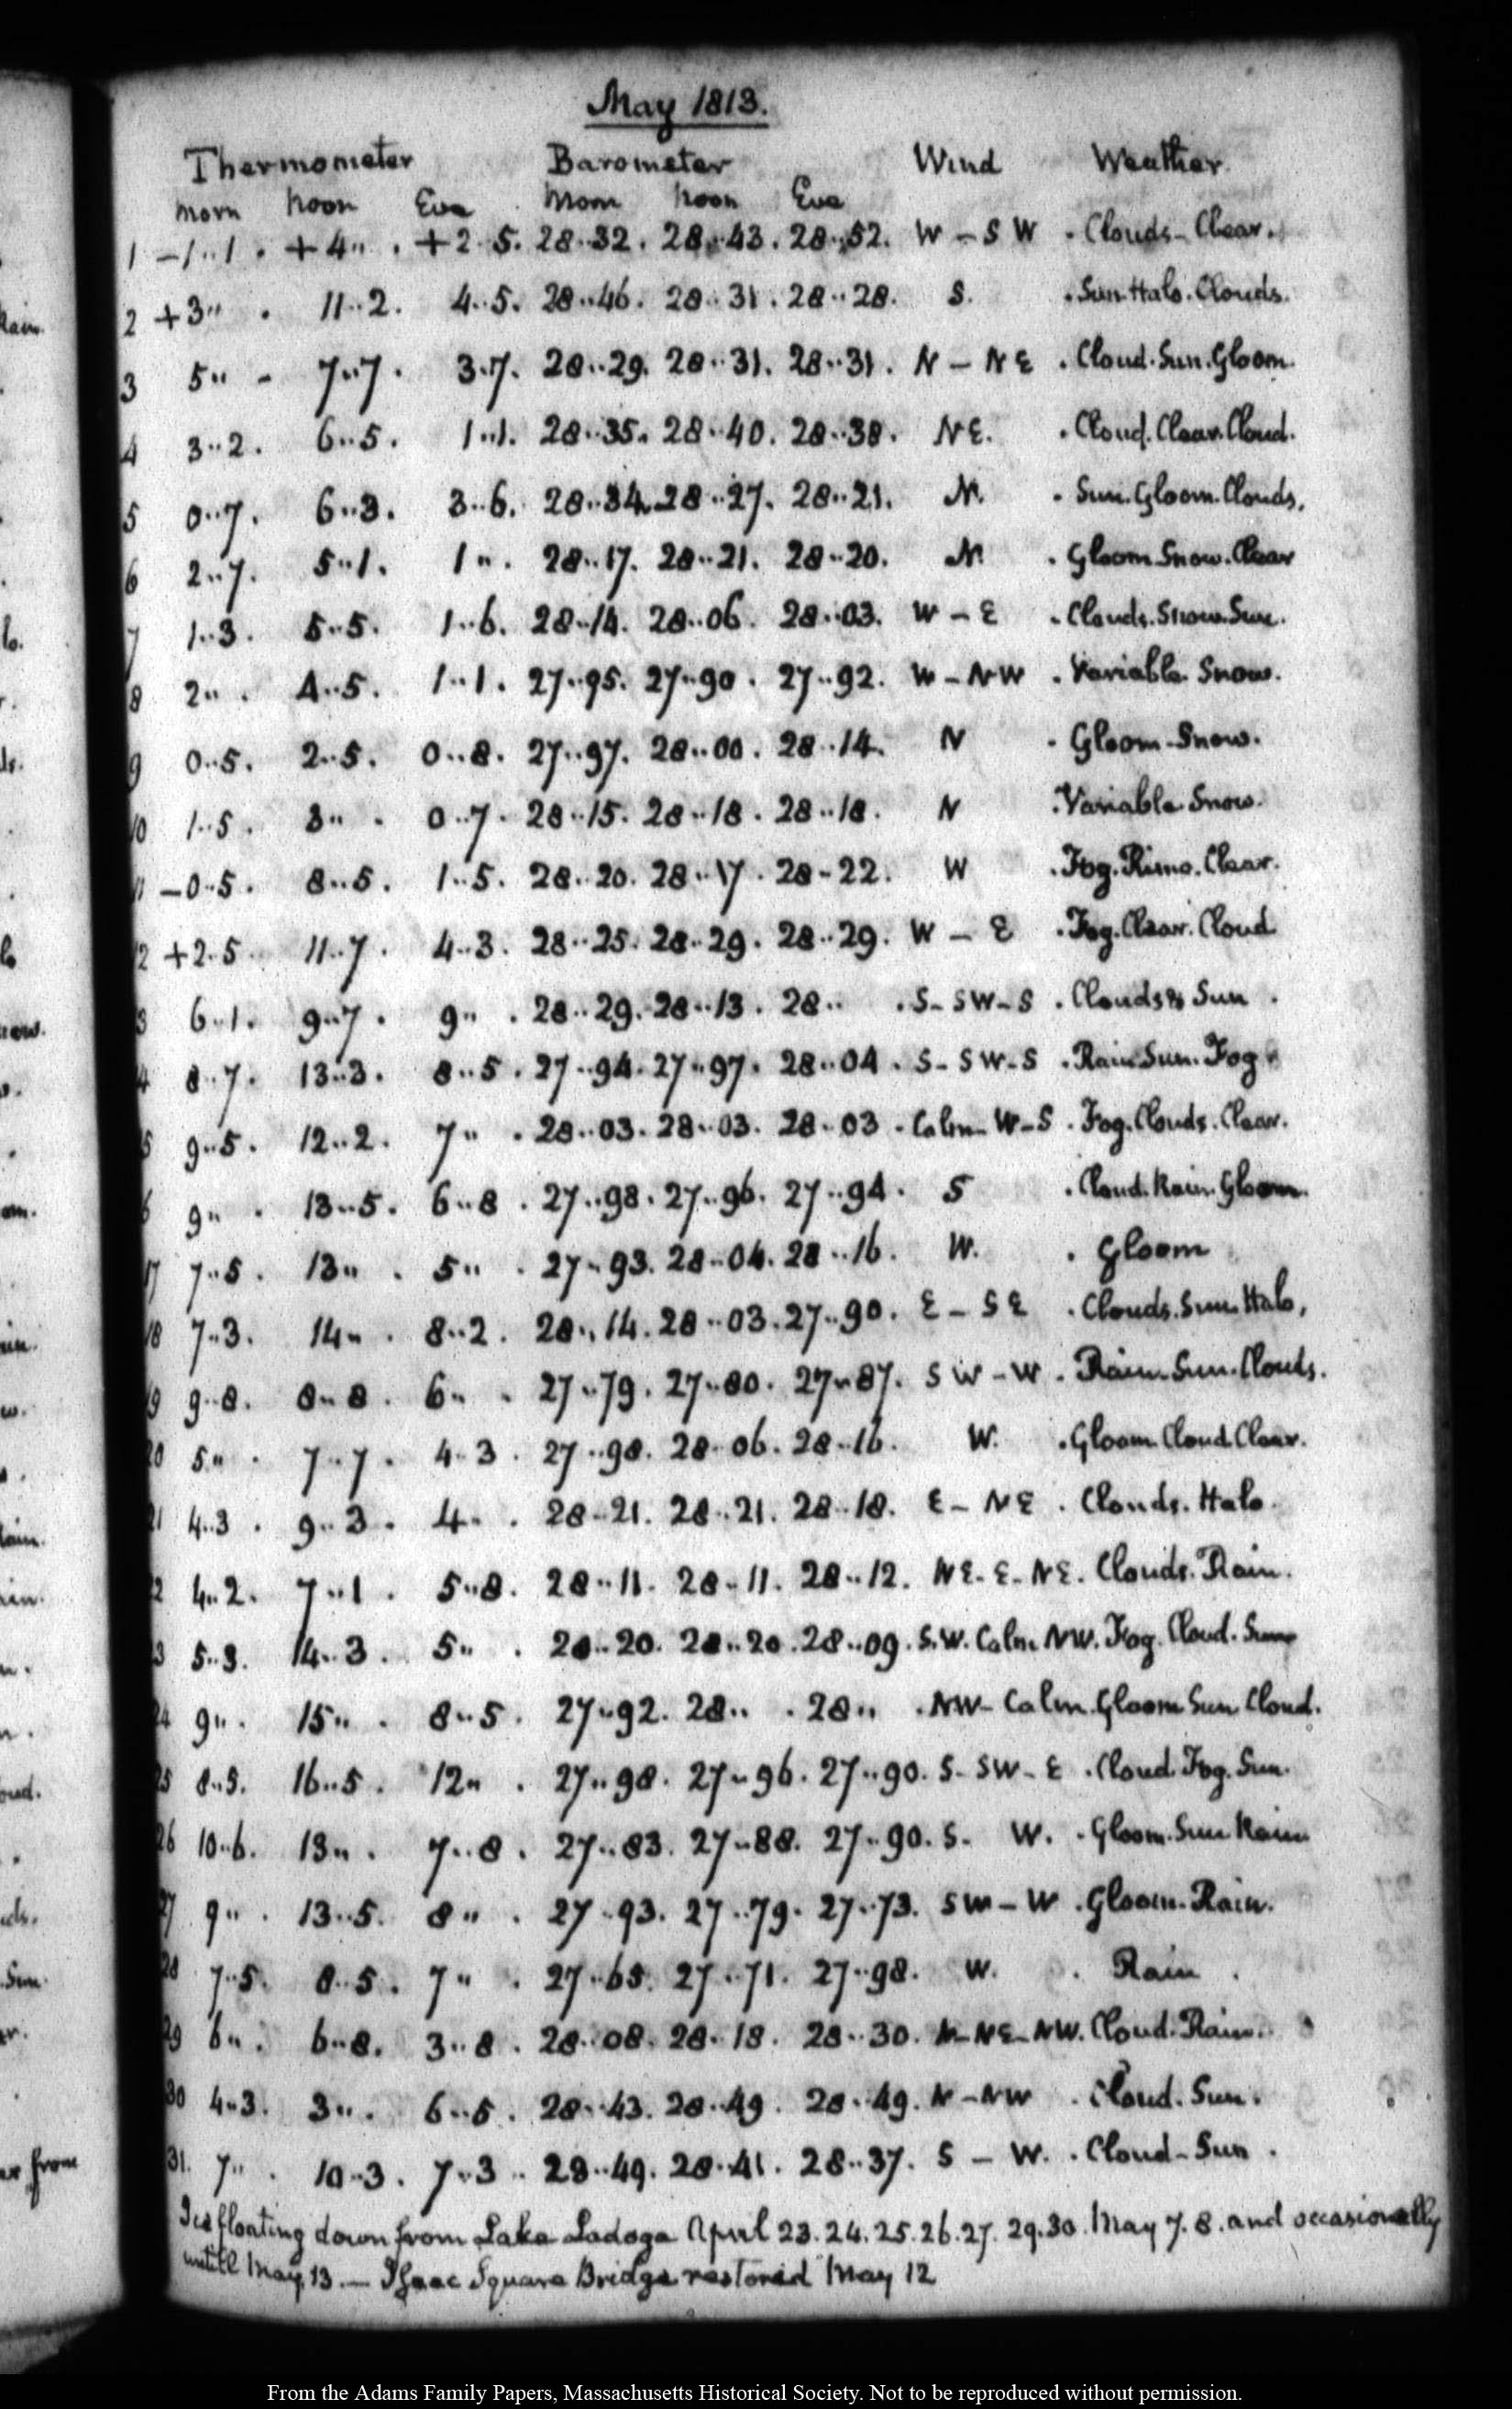 May 1813.
Thermometer Barometer Wind Weather.
Morn Noon Eve Morn Noon Eve
1 -1..1. +4.. . +2..5. 28..32. 28..43. 28..52. W - S W . Clouds - Clear.
2 +3.. . 11..2. 4..5. 28..46. 28..31. 28..28. S. . Sun. Halo. Clouds.
3 5.. - 7..7. 3.7. 28..29. 28..31. 28..31. N - N E . Cloud. Sun. Gloom.
4 3..2. 6..5. 1..1. 28..35. 28..40. 28..38. N E. . Cloud. Clear. Cloud.
5 0..7. 6..3. 3..6. 28..34. 28..27. 28..21. N. . Sun. Gloom. Clouds.
6 2..7. 5..1. 1.. . 28..17. 28..21. 28..20. N . Gloom. Snow. Clear
7 1..3. 5..5. 1..6. 28..14. 28..06. 28..03. W - E . Clouds. Snow. Sun.
8 2.. . 4..5. 1..1. 27..95. 27..90. 27..92. W - N W . Variable. Snow.
9 0..5. 2..5. 0..8. 27..97. 28..00. 28..14. N . Gloom - Snow.
10 1..5. 3.. . 0..7. 28..15. 28..18. 28..18. N . Variable. Snow.
11 -0..5. 8..5. 1..5. 28..20. 28..17. 28-22. W . Fog. Rime. Clear.
12 +2..5 11..7. 4..3. 28..25. 28..29. 28..29. W - E . Fog. Clear. Cloud
3 6..1. 9..7. 9.. . 28..29. 28..13. 28.. . S - S W - S . Clouds & Sun .
4 8..7. 13..3. 8..5. 27..94. 27..97. 28..04. S - S W - S . Rain Sun. Fog
5 9..5. 12..2. 7.. . 28..03. 28..03. 28..03 . Calm - W - S . Fog. Clouds. Clear.
6 9.. . 13..5. 6..8. 27..98. 27..96. 27..94. S . Cloud. Rain. Gloom.
17 7..5. 13.. . 5.. . 27..93. 28..04. 28..16. W. . Gloom
18 7..3. 14.. . 8..2. 28..14. 28..03. 27..90. E - S E . Clouds. Sun. Halo.
19 9..8. 8..8. 6.. . 27..79. 27..80. 27..87. S W - W . Rain. Sun. Clouds.
20 5.. . 7..7. 4..3. 27..98. 28..06. 28..16. W. . Gloom Cloud Clear.
21 4..3. 9..3. 4.. . 28..21. 28..21. 28..18. E - N E . Clouds. Halo.
2 4..2. 7..1. 5..8. 28..11. 28..11. 28..12. N E. E. N E. Clouds. Rain.
3 5..3. 14..3. 5.. . 28..20. 28..20. 28..09. S. W. Calm NW. Fog. Cloud. Sun
24 9.. . 15.. . 8..5. 27..92. 28.. . 28.. . NW - Calm. Gloom Sun Cloud.
25 8..5. 16..5. 12.. . 27..98. 27..96. 27..90. S - S W - E . Cloud. Fog. Sun.
26 10..6. 13.. . 7..8. 27..83. 27..88. 27..90. S. W. . Gloom. Sun Rain
27 9.. . 13..5. 8.. . 27..93. 27..79. 27..73. S W - W . Gloom. Rain.
28 7..5. 8..5. 7.. . 27..65. 27..71. 27..98. W. . Rain .
29 6.. . 6..8. 3..8. 28..08. 28..18. 28..30. N - N E - N W. Cloud. Rain.
30 4..3. 3.. . 6..5. 28..43. 28..49. 28..49. N - N W . Cloud. Sun.
31. 7.. . 10..3. 7..3 .. 28..49. 28..41. 28..37. S - W. . Cloud - Sun .
Ice floating down from Lake Ladoga April 23. 24. 25. 26. 27. 29. 30. May 7. 8. and occasionally
untill May 13. — Isaac Square Bridge restored May 12
From the Adams Family Papers, Massachusetts Historical Society. Not to be reproduced without permission.